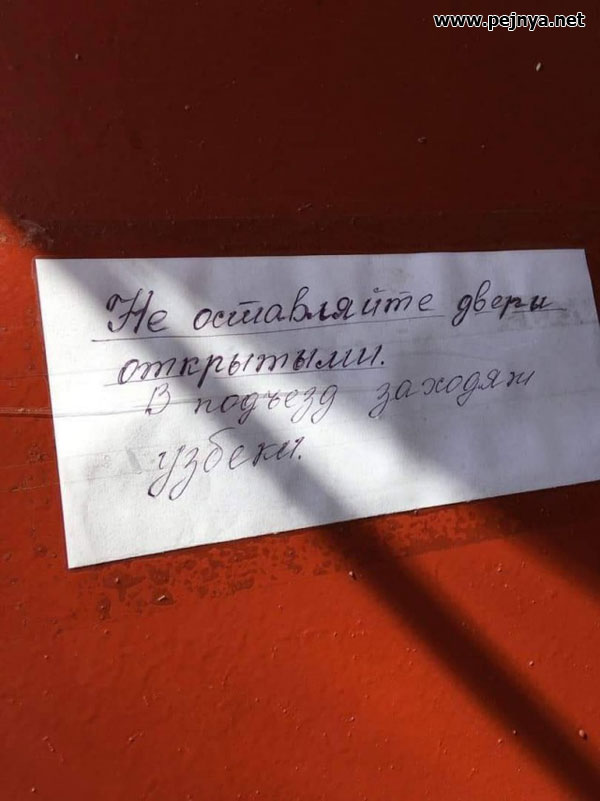 www.pejnya.net
Не оставляйте двери
открытыми.
В подъезд заходят
узбеки.